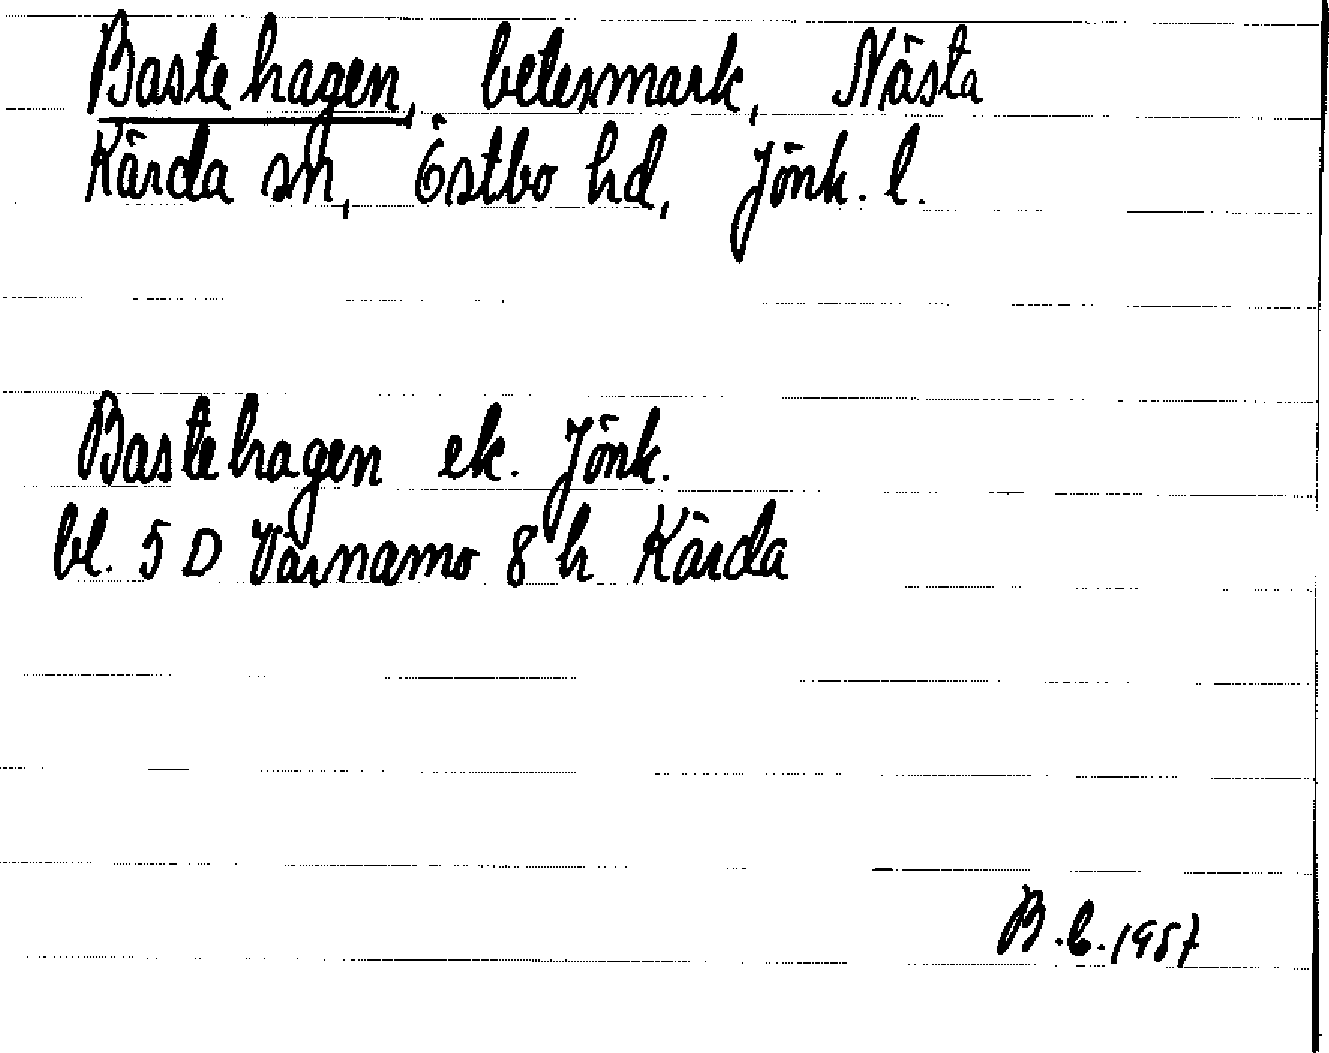 Bastehagen, betesmark, Nästa
Kärda sn, Östbo hd, Jönk. l.
Bastehagen ek. Jönk.
bl. 5 D Värnamo 8 h Kärda
B.C. 1957